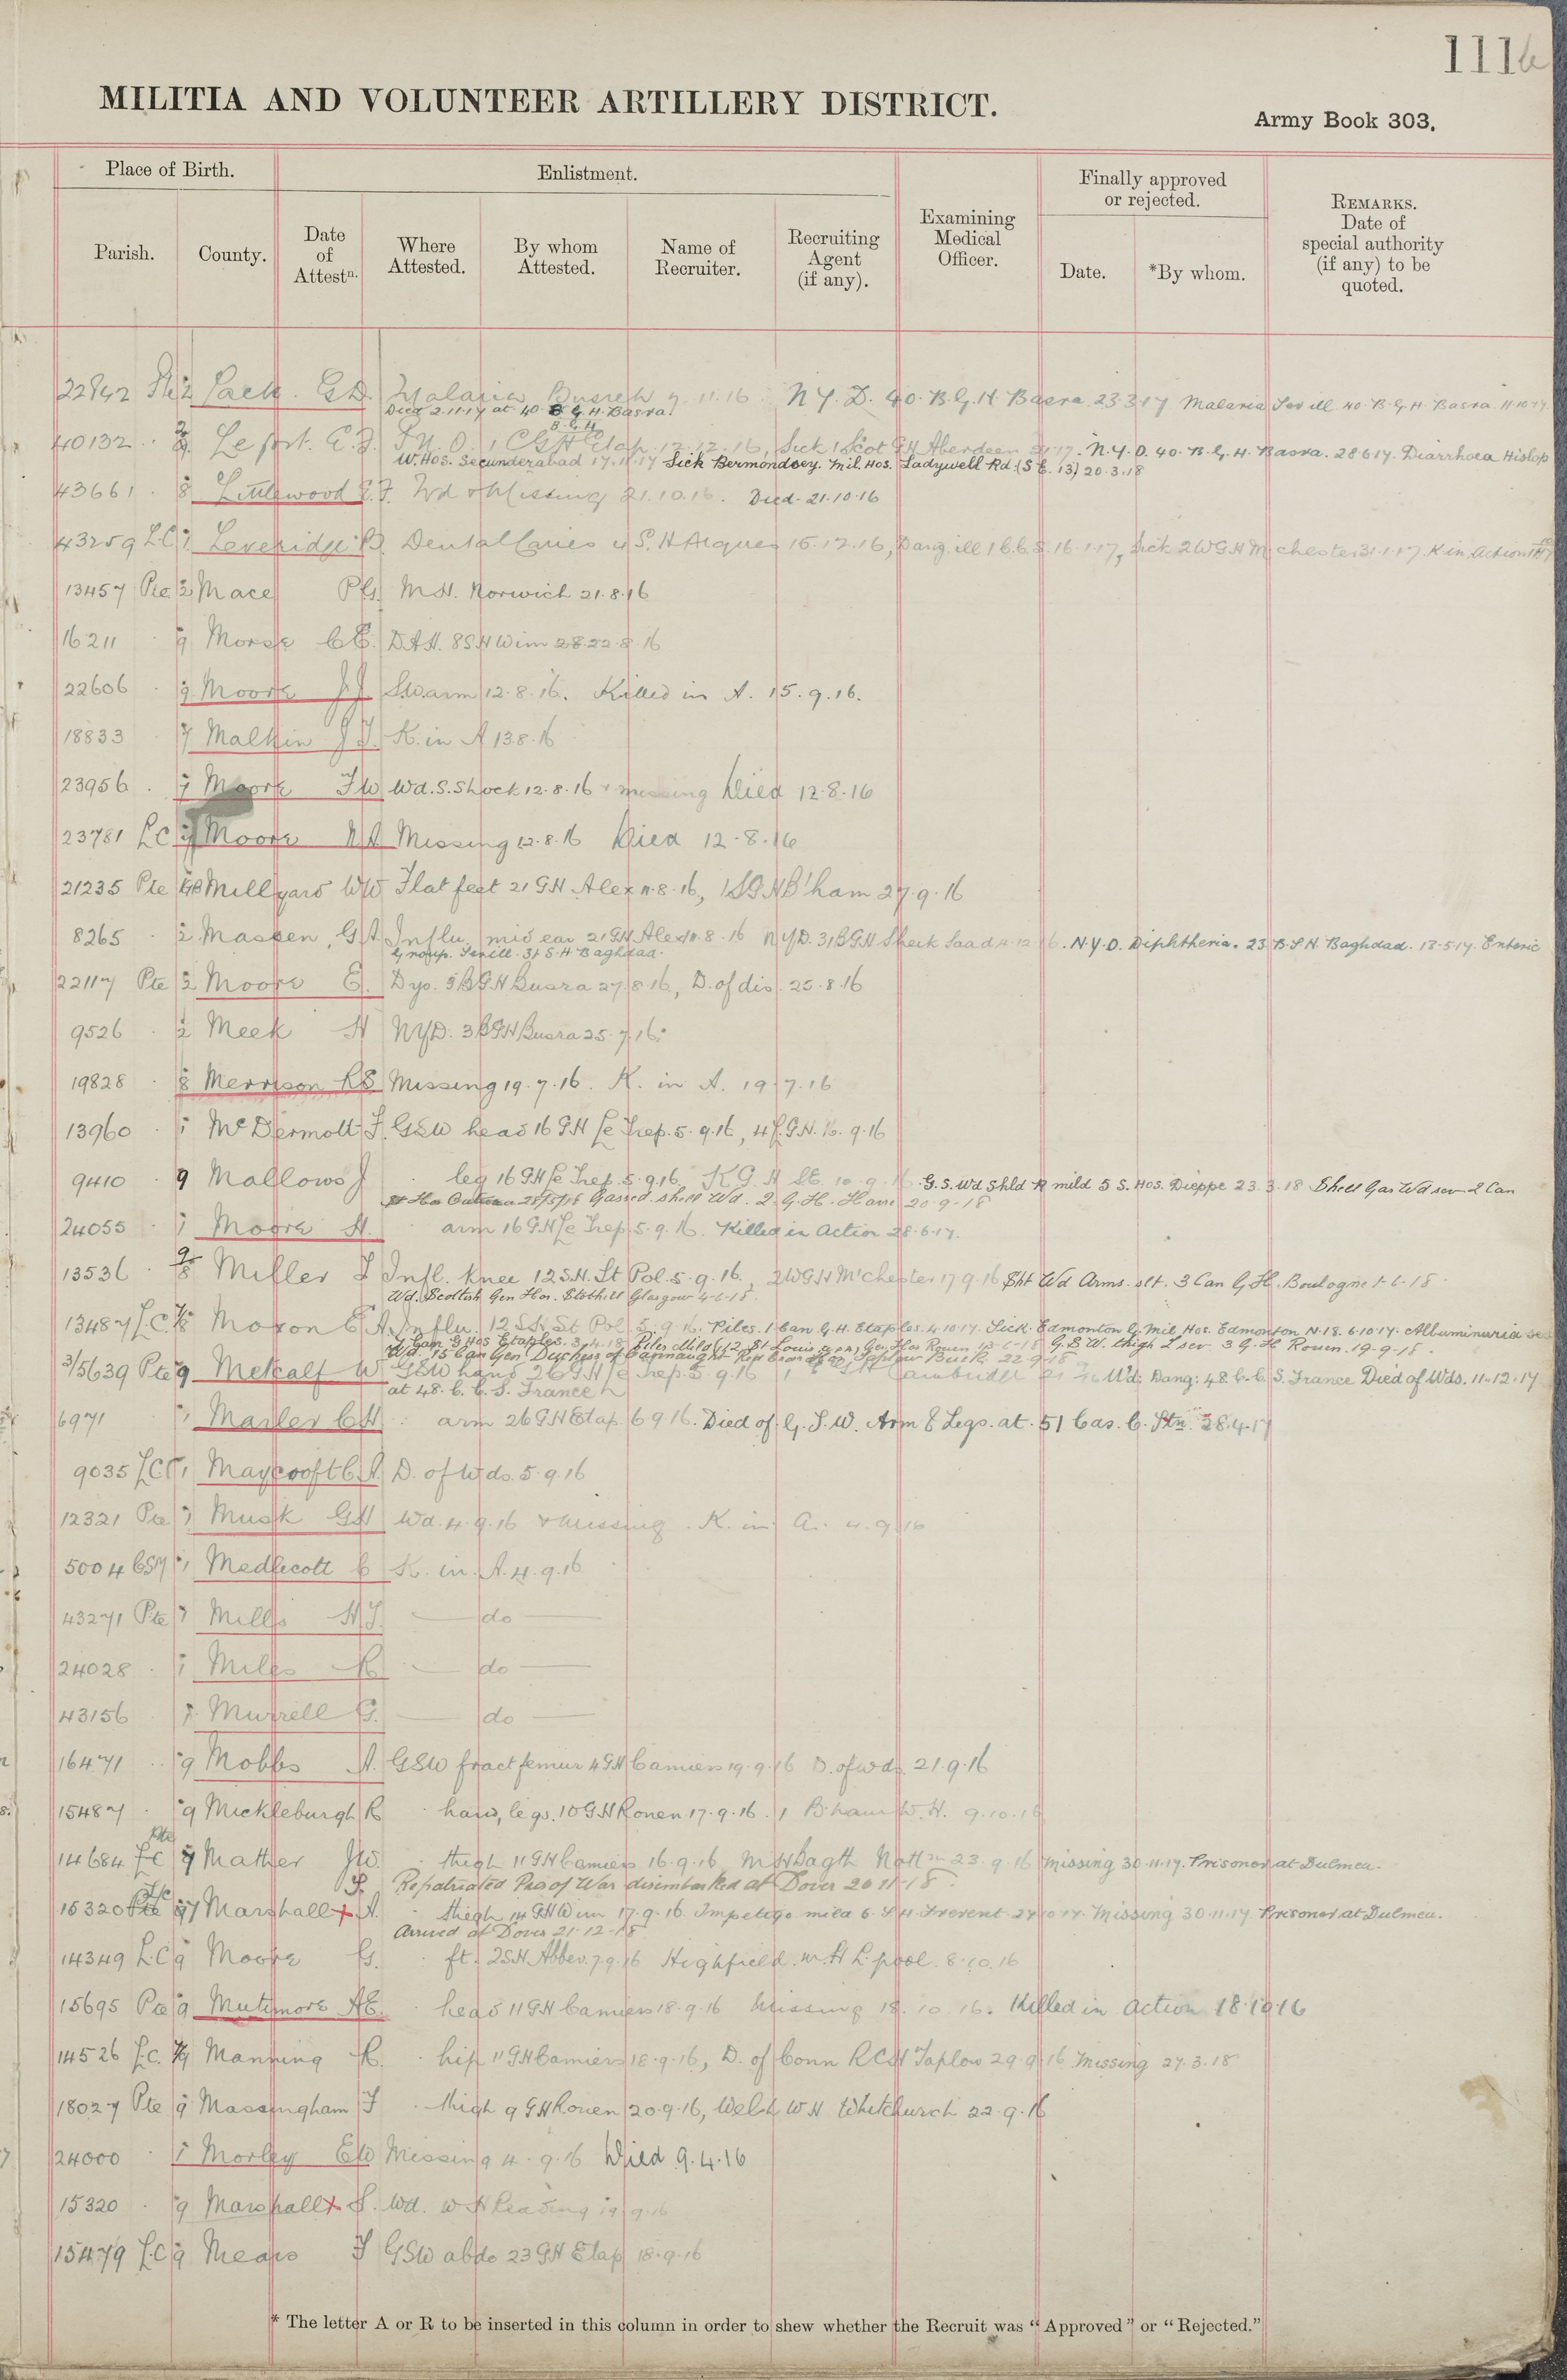 111b
MILITIA AND VOLUNTEER ARTILLERY DISTRICT.
Army Book 303.
Place of Birth.
Enlistment.
Finally approved or rejected.
Parish.
County.
Date of Attestn.
Where Attested.
By whom Attested.
Name of Recruiter.
Recruiting Agent (if any).
Examining Medical Officer.
Date.
*By whom.
REMARKS. Date of special authority (if any) to be quoted.
22842 Pte 2 Pack. G.D. Malaria Busreh 9.11.16. N.Y.D. 40.B.G.H. Basra 23.3.17 Malaria Sev ill 40.B.G.H. Basra 11.10.17
Died 2.11.17 at 40 B.G.H. Basra.
40132 Lefort. E.J. 12.12.16, Sick 1 Scot G.H. Aberdeen N.Y.D. 40.B.G.H. Basra. 28.6.17. Diarrhoea Hislop
W.Hos. Secunderabad 17.11.17 Sick Bermondsey. Mil. Hos. Ladywell Rd. (S.E. 13) 20.3.18
43661 8 Littlewood E.F. Wd & Missing 21.10.16. Died. 21.10.16
43259 L.C. 7 Leveridge B. Dental Caries 4 S.H Arques 15.12.16, Dang. ill 16.1.17, Sick 2 W G H M'chester 31.1.17 K in Action
13457 Pte 2 Mace P.G. M.H. Norwich 21.8.16
16211 9 Morse C E. D.A.H. 8 S H Wim 22.8.16
22606 9 Moore J.J S.W. arm 12.8.16. Killed in A. 15.9.16.
18833 7 Malkin J J. K. in A 13.8.16
23956 7 Moore F W Wd. S. Shock 12.8.16 & missing Died 12.8.16
23781 L C 7 Moore N A Missing 12.8.16 Died 12.8.16
21235 Pte Millyard W W Flat feet 21 G H Alex 11.8.16, 1 S G H B'ham 27.9.16
8265 2 Massen, G A Influ, mid ear 21 G H Alex 10.8.16 N Y D. 31 B G H Sheik Saad 4.12.16. N.Y.D. Diphtheria. 23 B.S H. Baghdad. 18.5.17. Enteric
Group. Sev ill. 31 S.H Baghdad.
22117 Pte 2 Moore E. Dys. 3 B G H Busra 27.8.16, D. of dis. 25.8.16
9526 2 Meek H N Y D. 3 B G H Busra 25.7.16
19828 8 Merrison R S Missing 19.7.16. K. in A. 19.7.16
13960 7 McDermott F. GSW head 16 G H Le Trep. 5.9.16, 4 L.G.H. 16.9.16
9410 9 Mallows J leg 16 G H Le Trep. 5.9.16, K G H St. 10.9.16 G.S. Wd Shld R mild 5 S. Hos. Dieppe 23.3.18 Shell Gas Wd sev 2 Can
Gassed. Shell Wd. 2 G.H. Havre 20-9-18
24055 7 Moore H. arm 16 G H Le Trep 5.9.16. Killed in Action 28.6.17.
13536 9/8 Miller J Infl. Knee 12 S.H. St Pol. 5.9.16, 2 W G H M'chester 17.9.16 Sht Wd Arms. slt. 3 Can G.H. Boulogne 1-6-18
Wd. Scottish Gen Hos. Stobhill Glasgow 4-6-18
13487 L.C. 7/8 Moxon C A. Influ. 12 S H St Pol 5.9.16. Piles. 1 Can G.H. Etaples. 4.10.17. Sick. Edmonton G. Mil Hos. Edmonton N.18. 6.10.17. Albuminuria
7 Can G Hos Etaples. 3.4.18 Piles Mild (12 St Louis U.S.A) Gen Hos Rouen G.S.W. thigh L sev. 3 G.H Rouen. 19-9-18.
Wd. 15 Can Gen. Duchess of Connaught Red Cross Hos, Taplow Buck. 22-9-18
3/5639 Pte 9 Metcalf W. GSW hand 26 G H Le Trep. 5.9.16 Wd: Dang: 48 C.C.S. France Died of Wds. 11.12.17
at 48. C.C.S. France
6971 7 Marler C H arm 26 G H Etap 6.9.16. Died of G.S.W. Arm & Legs. at 51 Cas. C. Stn. 28.4.17
9035 LCpl 1 Maycroft C A. D. of Wds. 5.9.16
12321 Pte 7 Musk G H Wd. 4.9.16 & Missing. K. in A. 4.9.16
5004 CSM 7 Medlicott C K. in A. 4.9.16
43271 Pte 7 Mills H J. — do —
24028 7 Miles R — do —
43156 7 Murrell G. — do —
16471 9 Mobbs A. GSW fract femur 4 G H Camiers 19.9.16 D. of wds 21.9.16
15487 9 Mickleburgh R hand, legs. 10 G H Rouen 17.9.16. 1 B'ham W. H. 9.10.16
14684 Pte LC 7 Mather J W. thigh 11 G H Camiers 16.9.16, M H Bagth Nottm 23.9.16 Missing 30.11.17. Prisoner at Dulmen.
Repatriated Pris of War disembarked at Dover 20.11.18
15320 L/C 7 Marshall × S. A. thigh 14 G H Wim 17.9.16 Impetigo mild 6 S H Frevent 27.10.17. Missing 30.11.17 Prisoner at Dulmen.
Arrived at Dover 21-12-18
14349 L.C 9 Moore G. ft. 2 S H Abbev. 7.9.16 Highfield M. H L'pool 8.10.16
15695 Pte 9 Mutimore A E. head 11 G H Camiers 18.9.16 Missing 18.10.16. Killed in action 18.10.16
14526 L.C. 7/9 Manning R. hip 11 G H Camiers 18.9.16, D. of Conn R C H Taplow 29.9.16 Missing 27.3.18
18027 Pte 9 Massingham F thigh 9 G H Rouen 20.9.16, Welsh W H Whitchurch 22.9.16
24000 7 Morley E W Missing 4.9.16 Died 9.4.16
15320 9 Marshall × S. Wd. W H Reading 19.9.16
15479 L.C 9 Mears F GSW abdo 23 G H Etap 18.9.16
* The letter A or R to be inserted in this column in order to shew whether the Recruit was "Approved" or "Rejected."